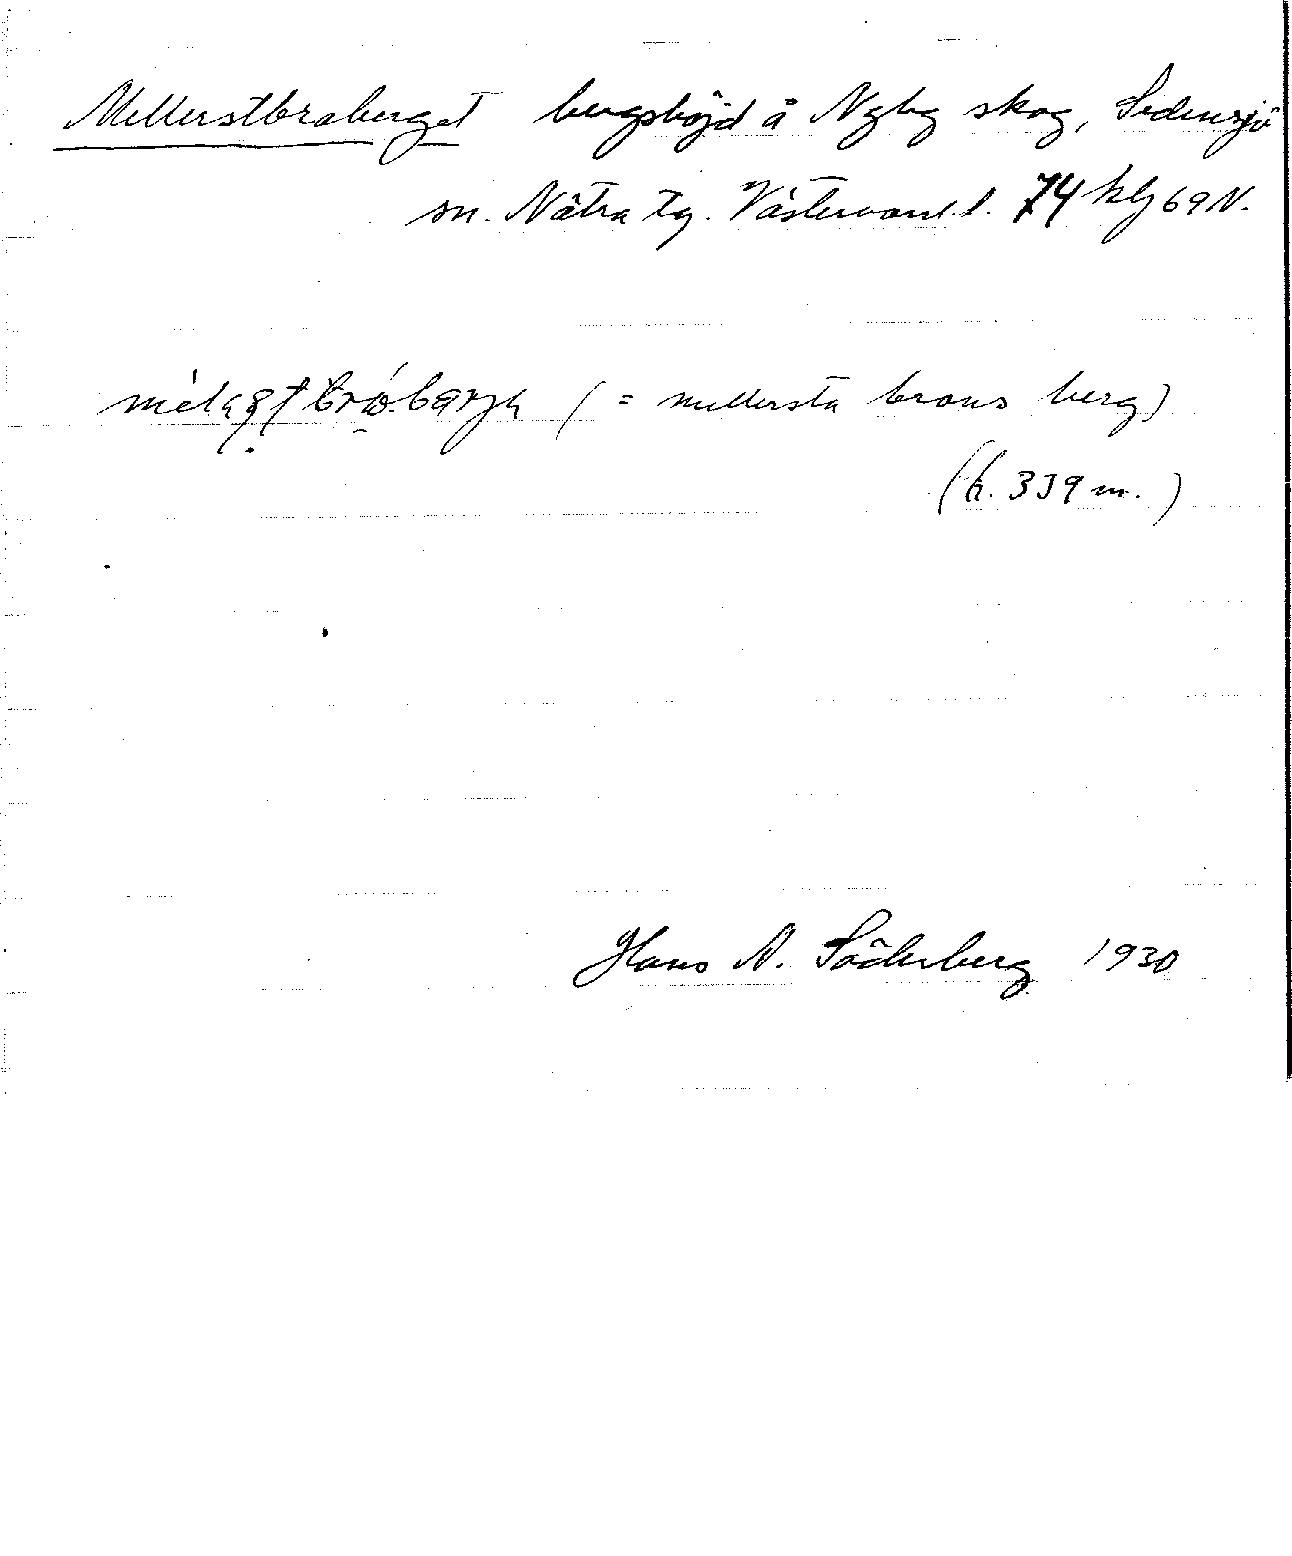 Mellerstbraberget bergshöjd å Nyby skog, Sidensjö
sn. Nätra tg. Västernorrl.l. 74 hlg 69 N.
(= mellersta brans berg)
(h. 339 m.)
Hans N. Söderberg 1930